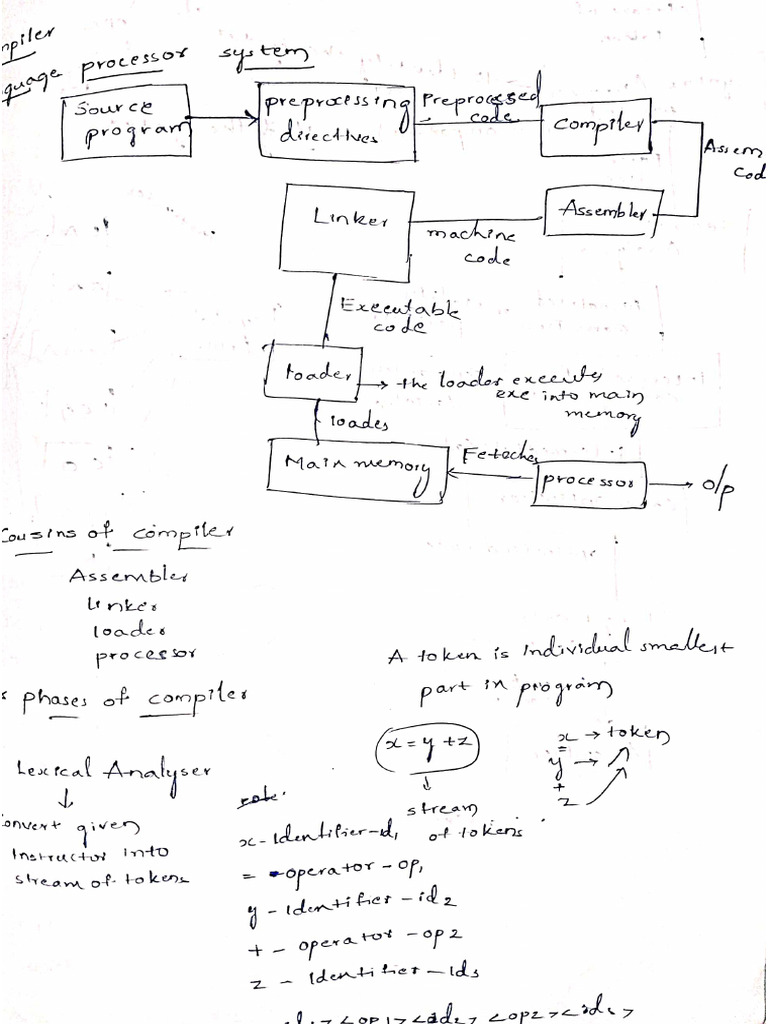 mpiler
guage processor system
Source
program
preprocessing
directives
Preprocessed
code
Compiler
Assem
Cod
Linker
machine
code
Assembler
Executable
code
loader
the loader executes
exe into main
memory
loades
Main memory
Fetches
processor
o/p
Cousins of compiler
Assembler
Linker
loader
processor
A token is individual smallest
part in program
s phases of compiler
x = y + z
x → token
=
y →
+
z
Lexical Analyser
↓
↓
stream
of tokens
onvert given
Instructor into
stream of tokens
x - Identifier - id1
= - operator - op1
y - Identifier - id2
+ - operator - op2
z - Identifier - id3
<op1> <id2> <op2> <id3>